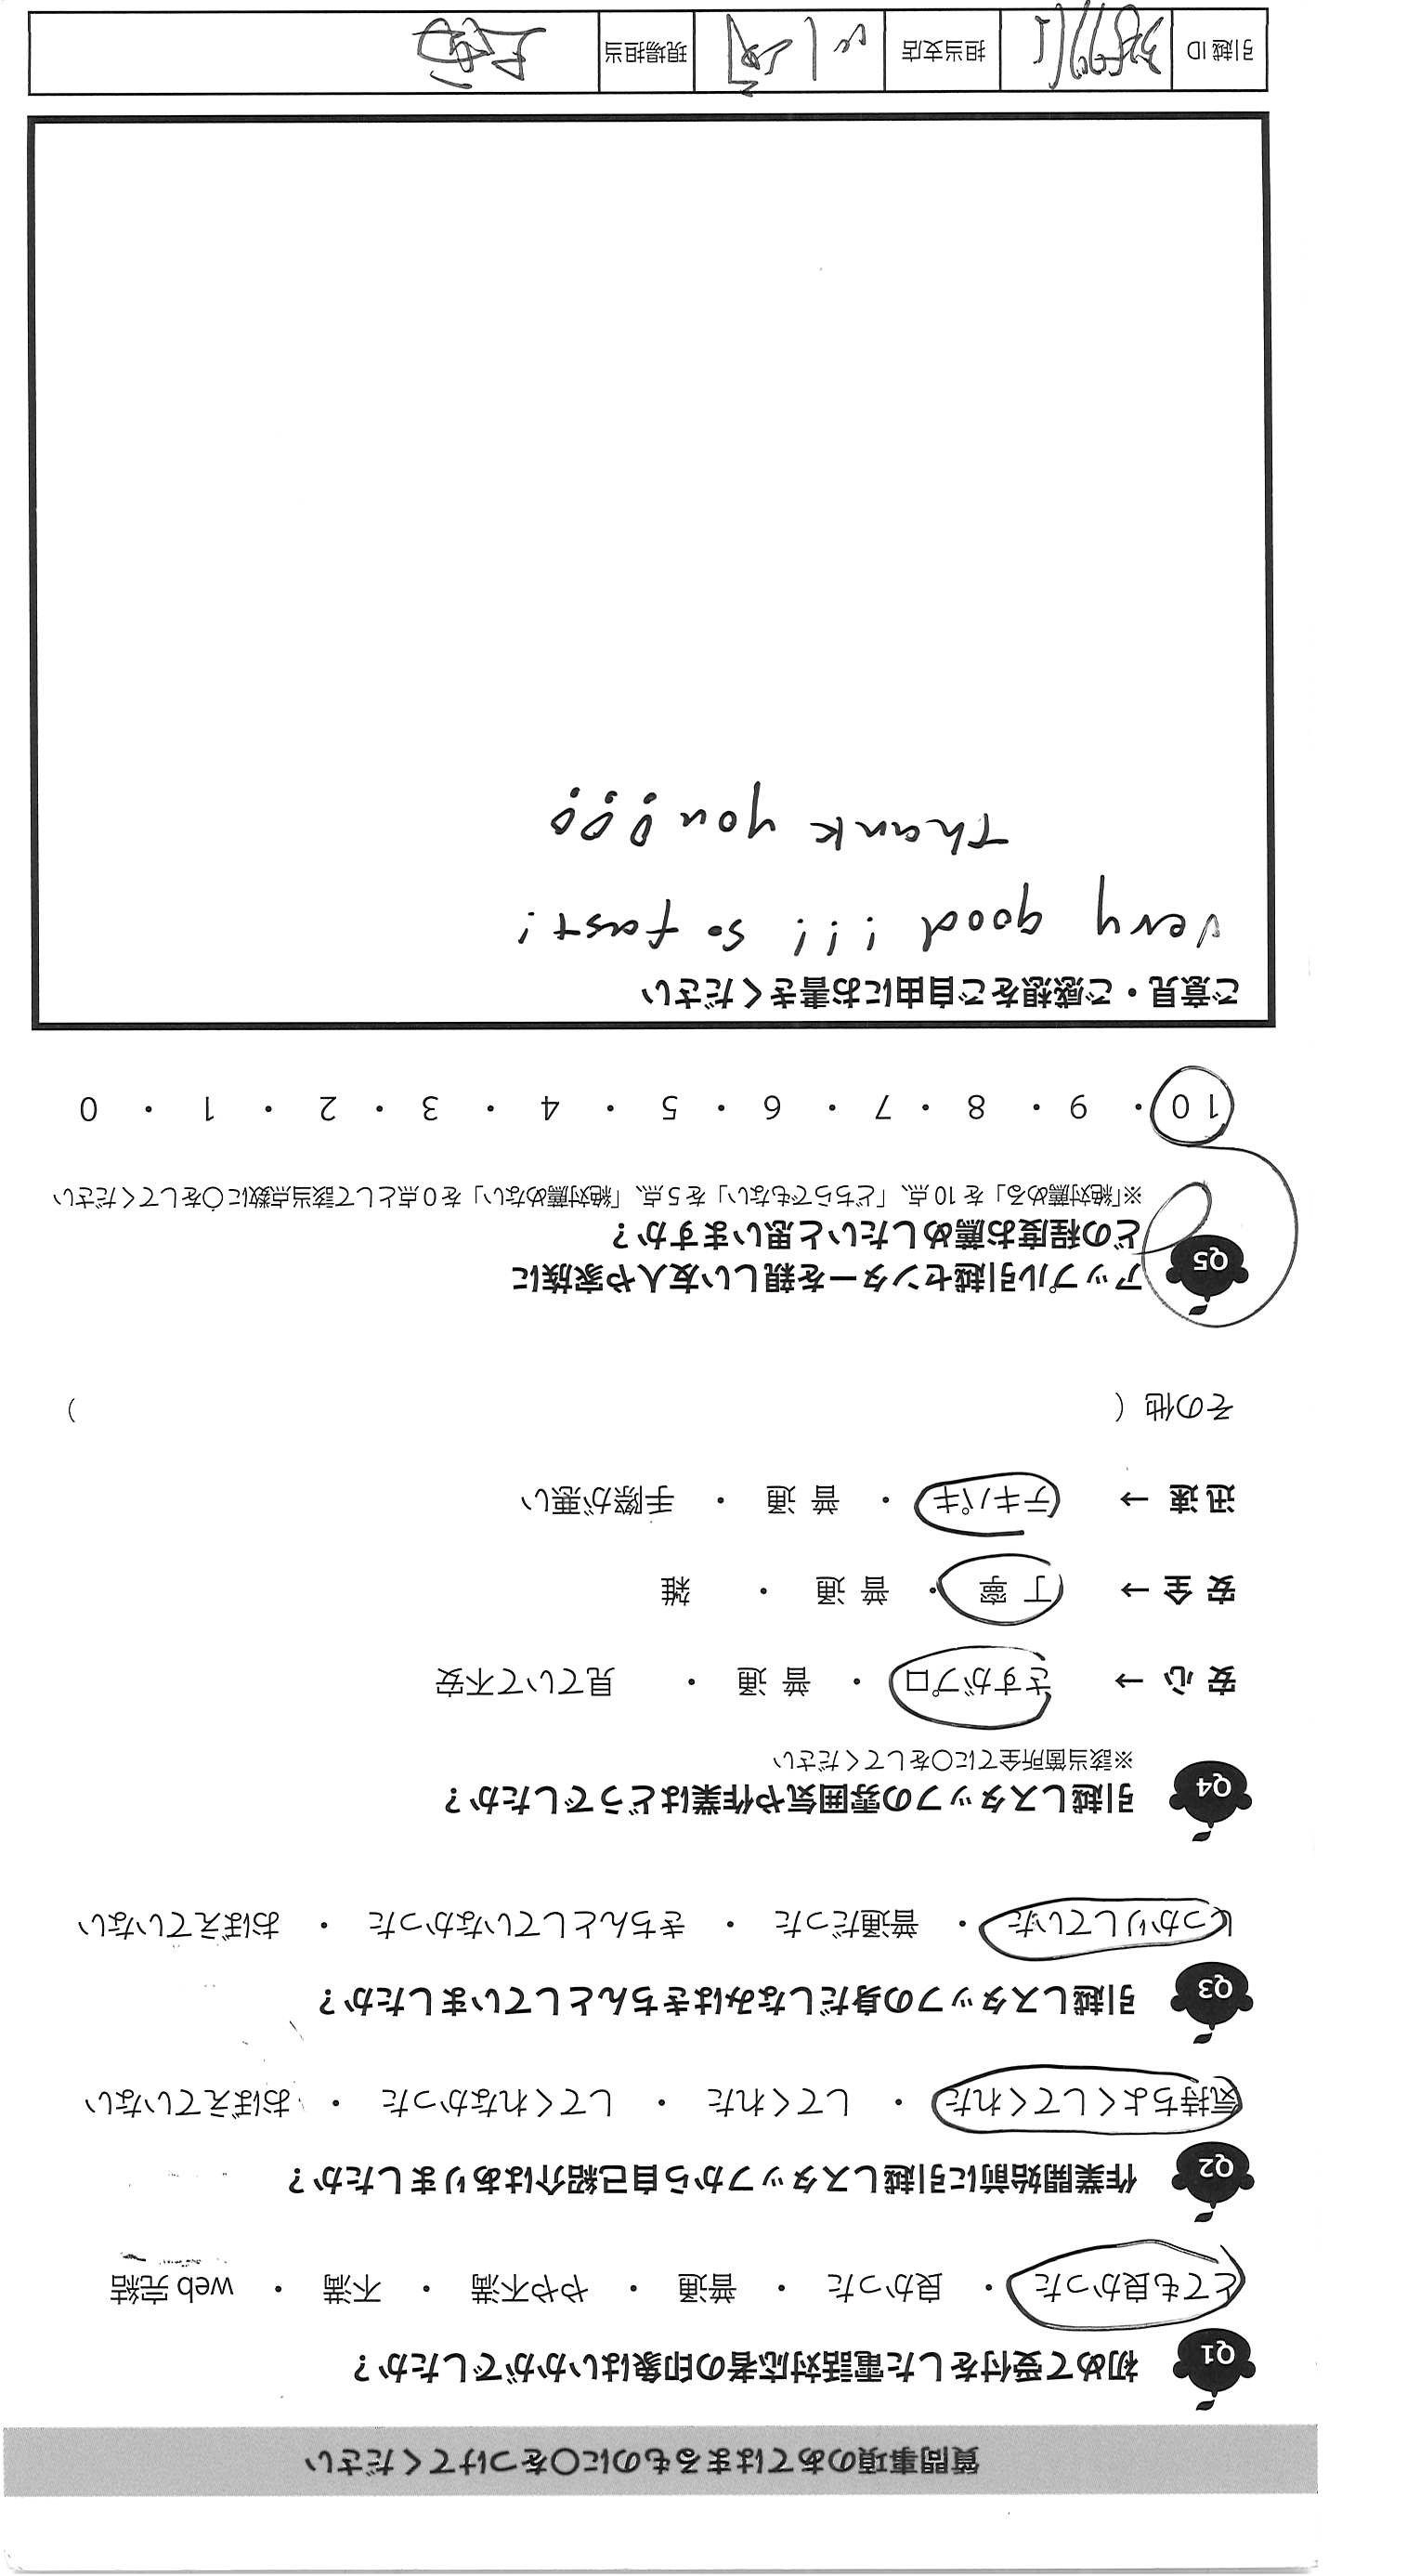 質問事項のあてはまるものに○をつけてください
Q1 初めて受付をした電話対応者の印象はいかがでしたか？
とても良かった ・ 良かった ・ 普通 ・ やや不満 ・ 不満 ・ web 完結
Q2 作業開始前に引越しスタッフから自己紹介はありましたか？
気持ちよくしてくれた ・ してくれた ・ してくれなかった ・ おぼえていない
Q3 引越しスタッフの身だしなみはきちんとしていましたか？
しっかりしていた ・ 普通だった ・ きちんとしていなかった ・ おぼえていない
Q4 引越しスタッフの雰囲気や作業はどうでしたか？
※該当箇所全てに○をしてください
安 心 → さすがプロ ・ 普 通 ・ 見ていて不安
安 全 → 丁 寧 ・ 普 通 ・ 雑
迅 速 → テキパキ ・ 普 通 ・ 手際が悪い
その他（ ）
Q5 アップル引越センターを親しい友人や家族に
どの程度お薦めしたいと思いますか？
※「絶対薦める」を 10 点、「どちらでもない」を 5 点、「絶対薦めない」を 0 点として該当点数に○をしてください
10 ・ 9 ・ 8 ・ 7 ・ 6 ・ 5 ・ 4 ・ 3 ・ 2 ・ 1 ・ 0
ご意見・ご感想をご自由にお書きください
very good !!! so fast!
Thank you!!!
引越 ID 担当支店 現場担当